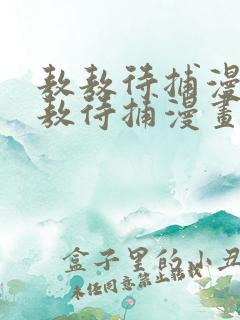 敖敖待捕漫
敖待捕漫畫
盒子里的小丑
未经同意禁止转载